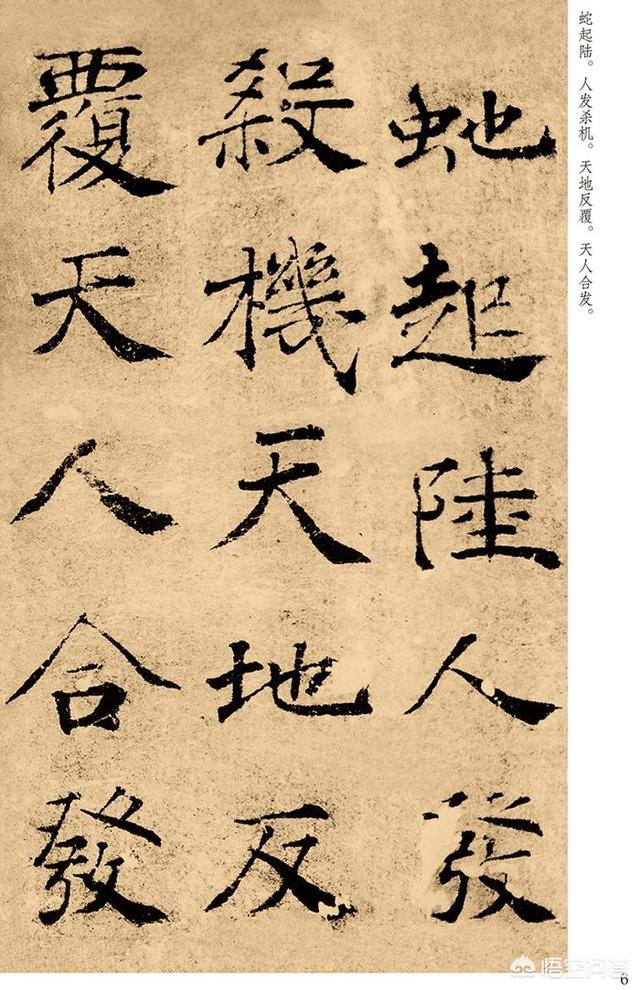 虵起陸人發
殺機天地反
覆天人合發
蛇起陆。人发杀机。天地反覆。天人合发。
6
悟空问答